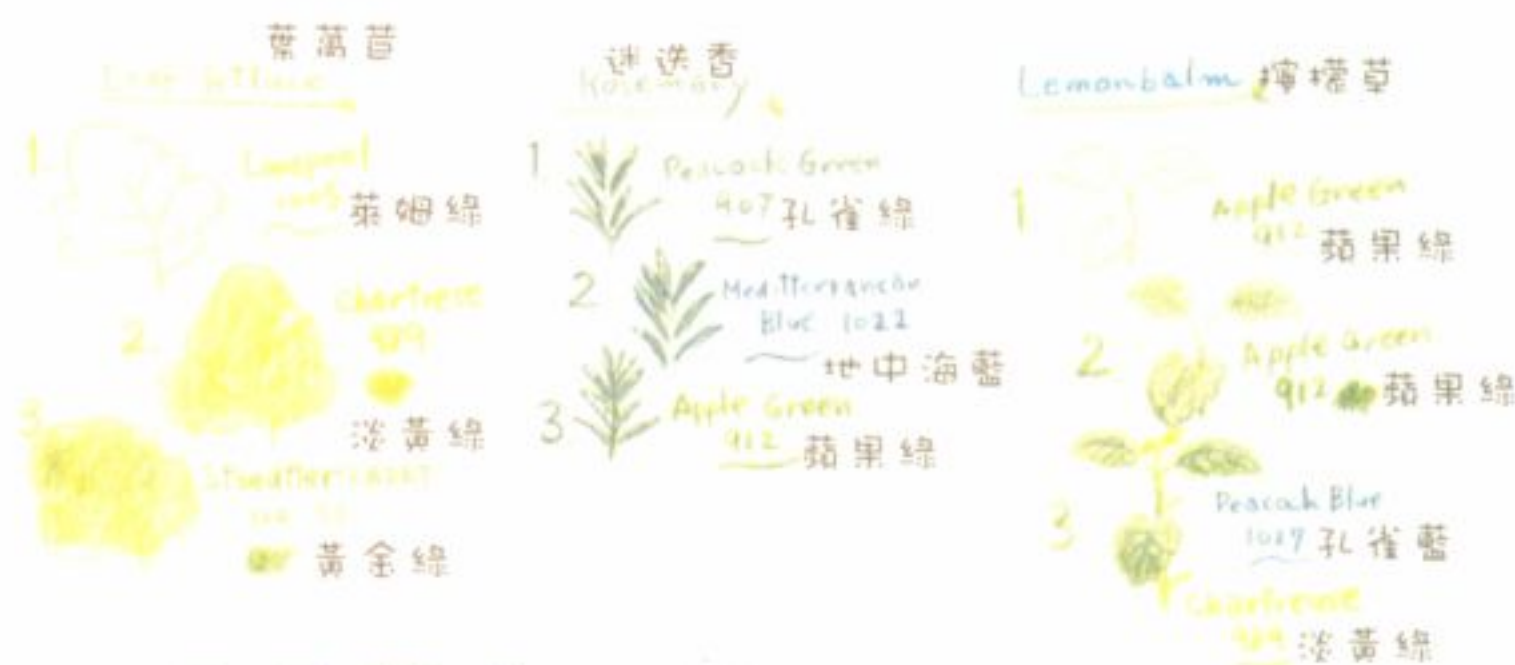 葉萵苣
1
萊姆綠
2
chartreuse
989
淡黃綠
3
黃金綠
迷迭香
Rosemary
1
Peacock Green
907 孔雀綠
2
Mediterranean
Blue 1022
地中海藍
3
Apple Green
912 蘋果綠
Lemonbalm 檸檬草
1
Apple Green
912 蘋果綠
2
Apple Green
912 蘋果綠
3
Peacock Blue
1027 孔雀藍
Chartreuse
989 淡黃綠